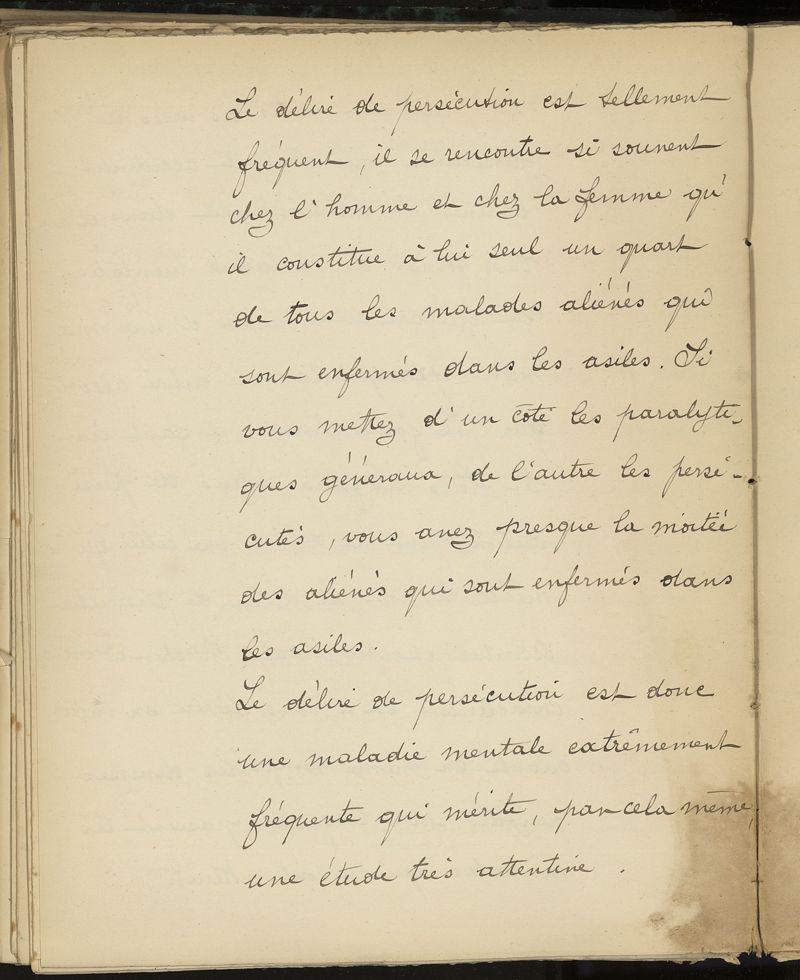 Le délire de persécution est tellement
fréquent, il se rencontre si souvent
chez l'homme et chez la femme qu'
il constitue à lui seul un quart
de tous les malades aliénés qui
sont enfermés dans les asiles. Si
vous mettez d'un côté les paralyti-
ques généraux, de l'autre les persé-
cutés, vous avez presque la moitié
des aliénés qui sont enfermés dans
les asiles.
Le délire de persécution est donc
une maladie mentale extrêmement
fréquente qui mérite, par cela même,
une étude très attentive.